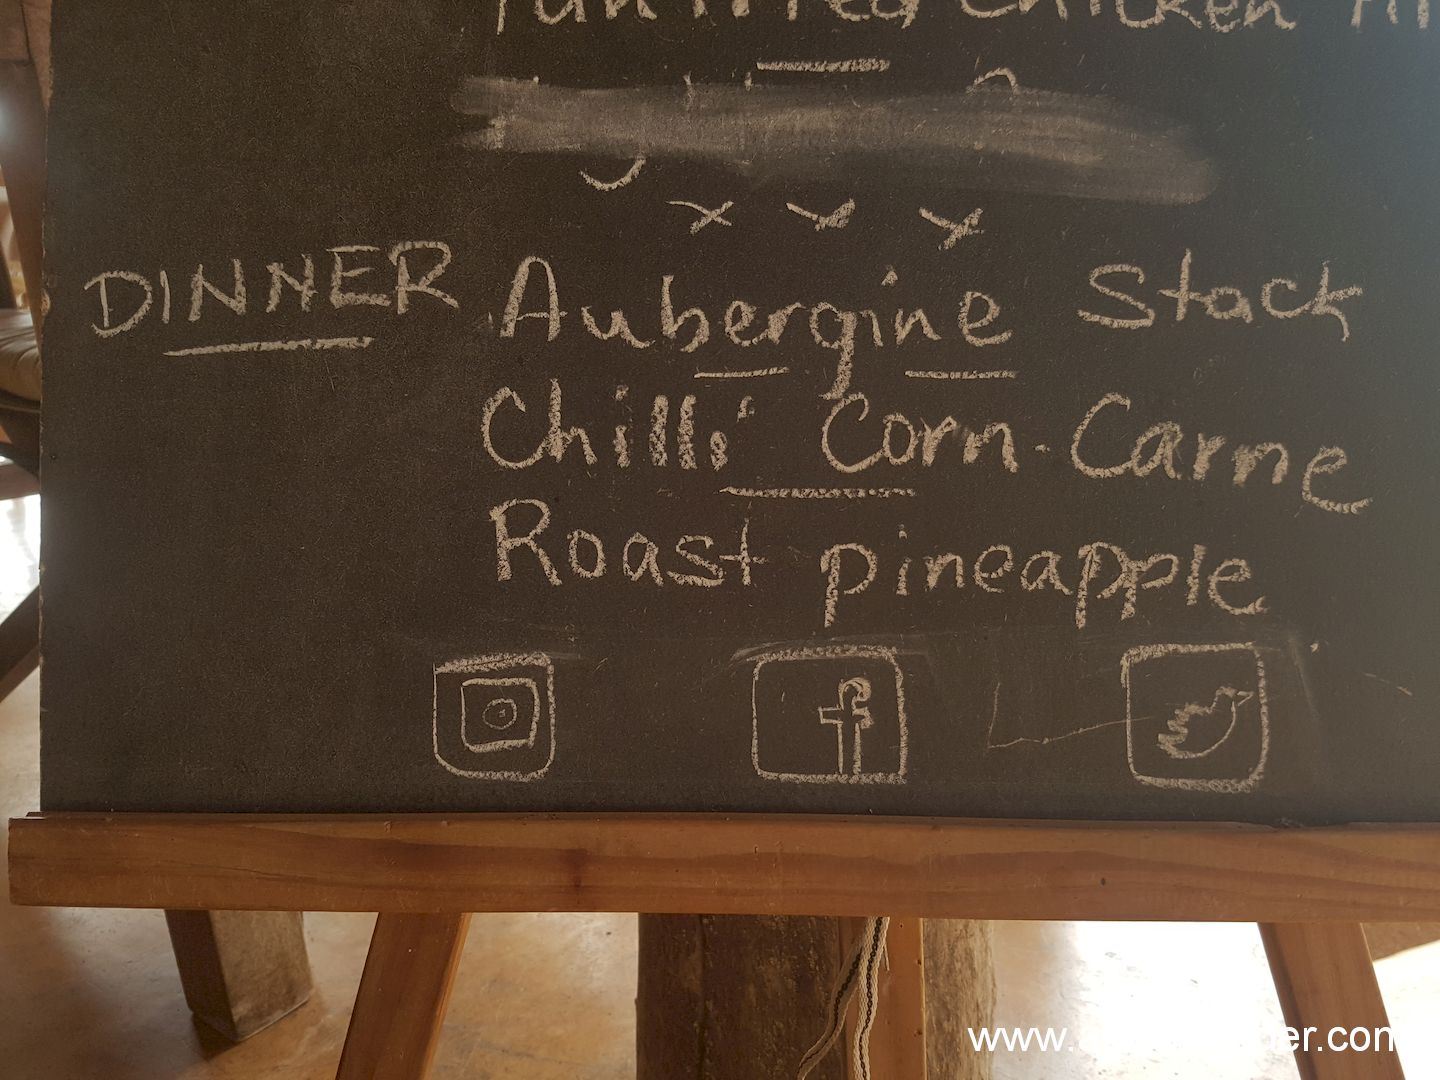 Pan fried Chicken
DINNER Aubergine Stack
Chilli Corn-Carne
Roast pineapple